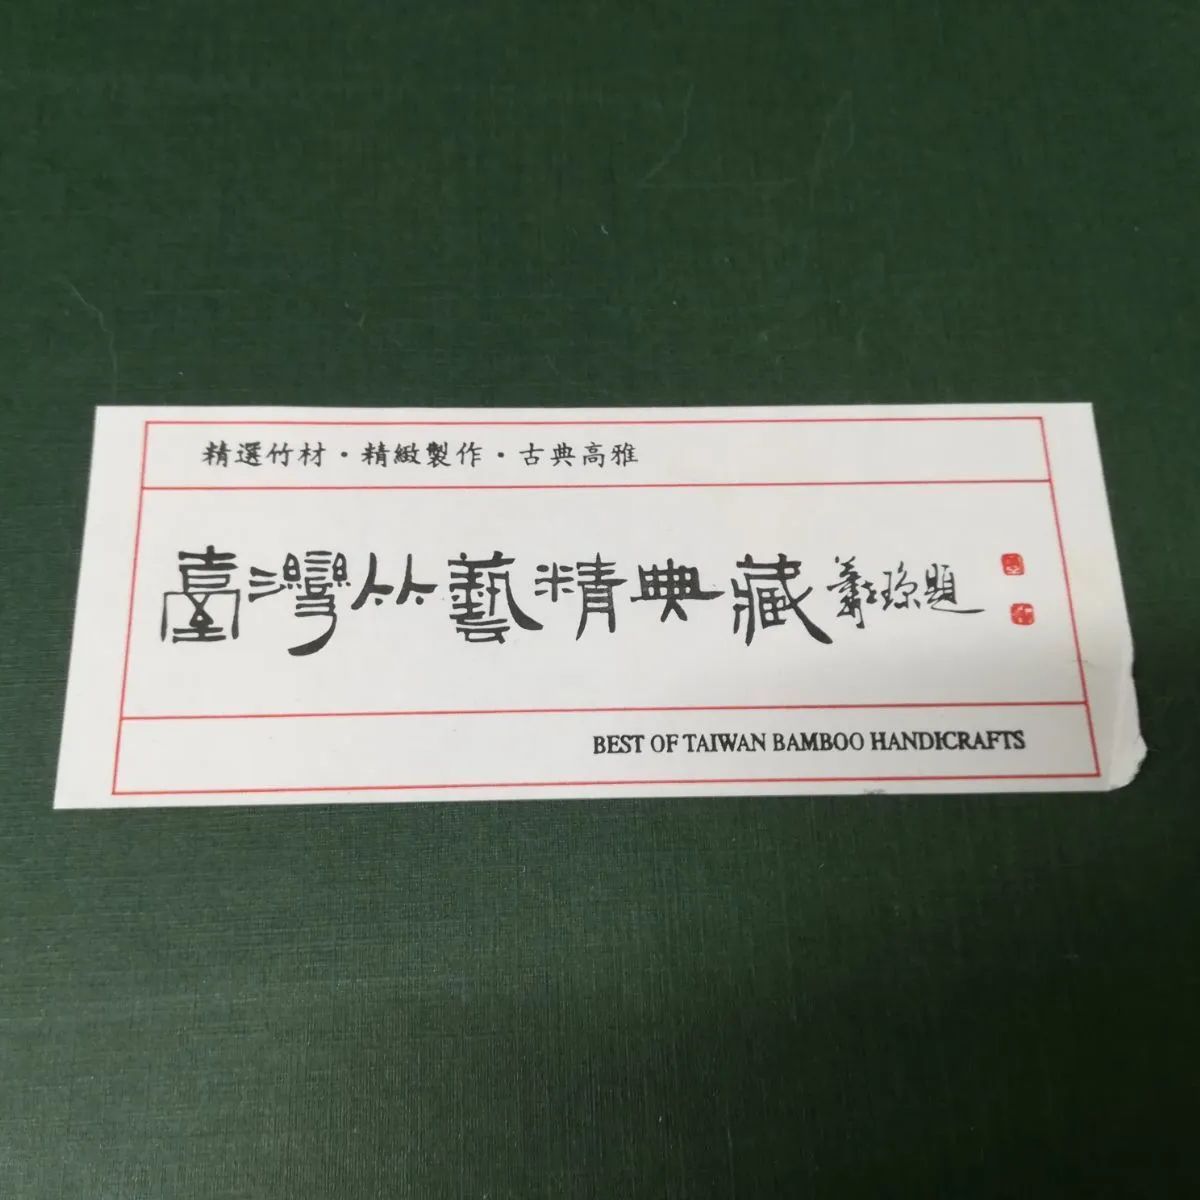 精選竹材・精緻製作・古典高雅
臺灣竹藝精典藏 題
BEST OF TAIWAN BAMBOO HANDICRAFTS